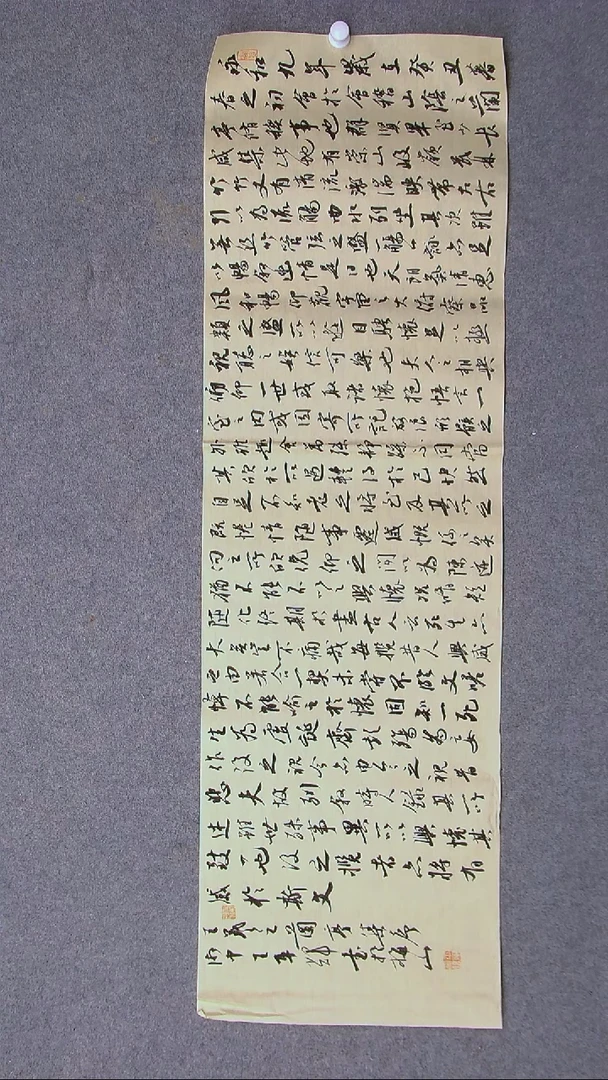 永和九年歲在癸丑暮
春之初會於會稽山陰之蘭
亭脩禊事也群賢畢至少長
咸集此地有崇山峻領茂林
脩竹又有清流激湍映帶左右
引以為流觴曲水列坐其次雖
無絲竹管弦之盛一觴一詠亦足
以暢敘幽情是日也天朗氣清惠
風和暢仰觀宇宙之大俯察品
類之盛所以遊目騁懷足以極
視聽之娛信可樂也夫人之相與
俯仰一世或取諸懷抱悟言一
室之內或因寄所託放浪形骸之
外雖趣舍萬殊靜躁不同當
其欣於所遇暫得於己快然
自足不知老之將至及其所之
既惓情隨事遷感慨係之矣
向之所欣俛仰之間以為陳迹
猶不能不以之興懷況脩短
隨化終期於盡古人云死生亦
大矣豈不痛哉每攬昔人興感
之由若合一契未嘗不臨文嗟
悼不能喻之於懷固知一死
生為虛誕齊彭殤為妄
作後之視今亦由今之視昔
悲夫故列敘時人錄其所
述雖世殊事異所以興懷其
致一也後之攬者亦將有
感於斯文
王羲之蘭亭集序
丙申年書於梅山